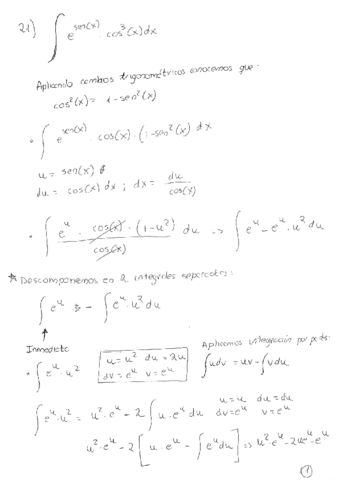 21) ∫ e^sen(x) · cos³(x) dx
Aplicando cambios trigonométricos conocemos que:
cos²(x) = 1 - sen²(x)
• ∫ e^sen(x) · cos(x) · (1 - sen²(x) dx
u = sen(x)
du = cos(x) dx ; dx = du/cos(x)
• ∫ e^u · cos(x) · (1-u²) / cos(x) du → ∫ e^u - e^u · u² du
* Descomponemos en 2 integrales separadas:
∫ e^u - ∫ e^u · u² du
Inmediata
Aplicamos integración por partes:
• ∫ e^u · u²
u = u² du = 2u
dv = e^u v = e^u
∫ u dv = uv - ∫ v du
∫ e^u · u² = u² · e^u - 2 ∫ u · e^u du
u = u du = du
dv = e^u v = e^u
u² · e^u - 2 [ u · e^u - ∫ e^u du ] ⇒ u² · e^u - 2ue^u - e^u
1